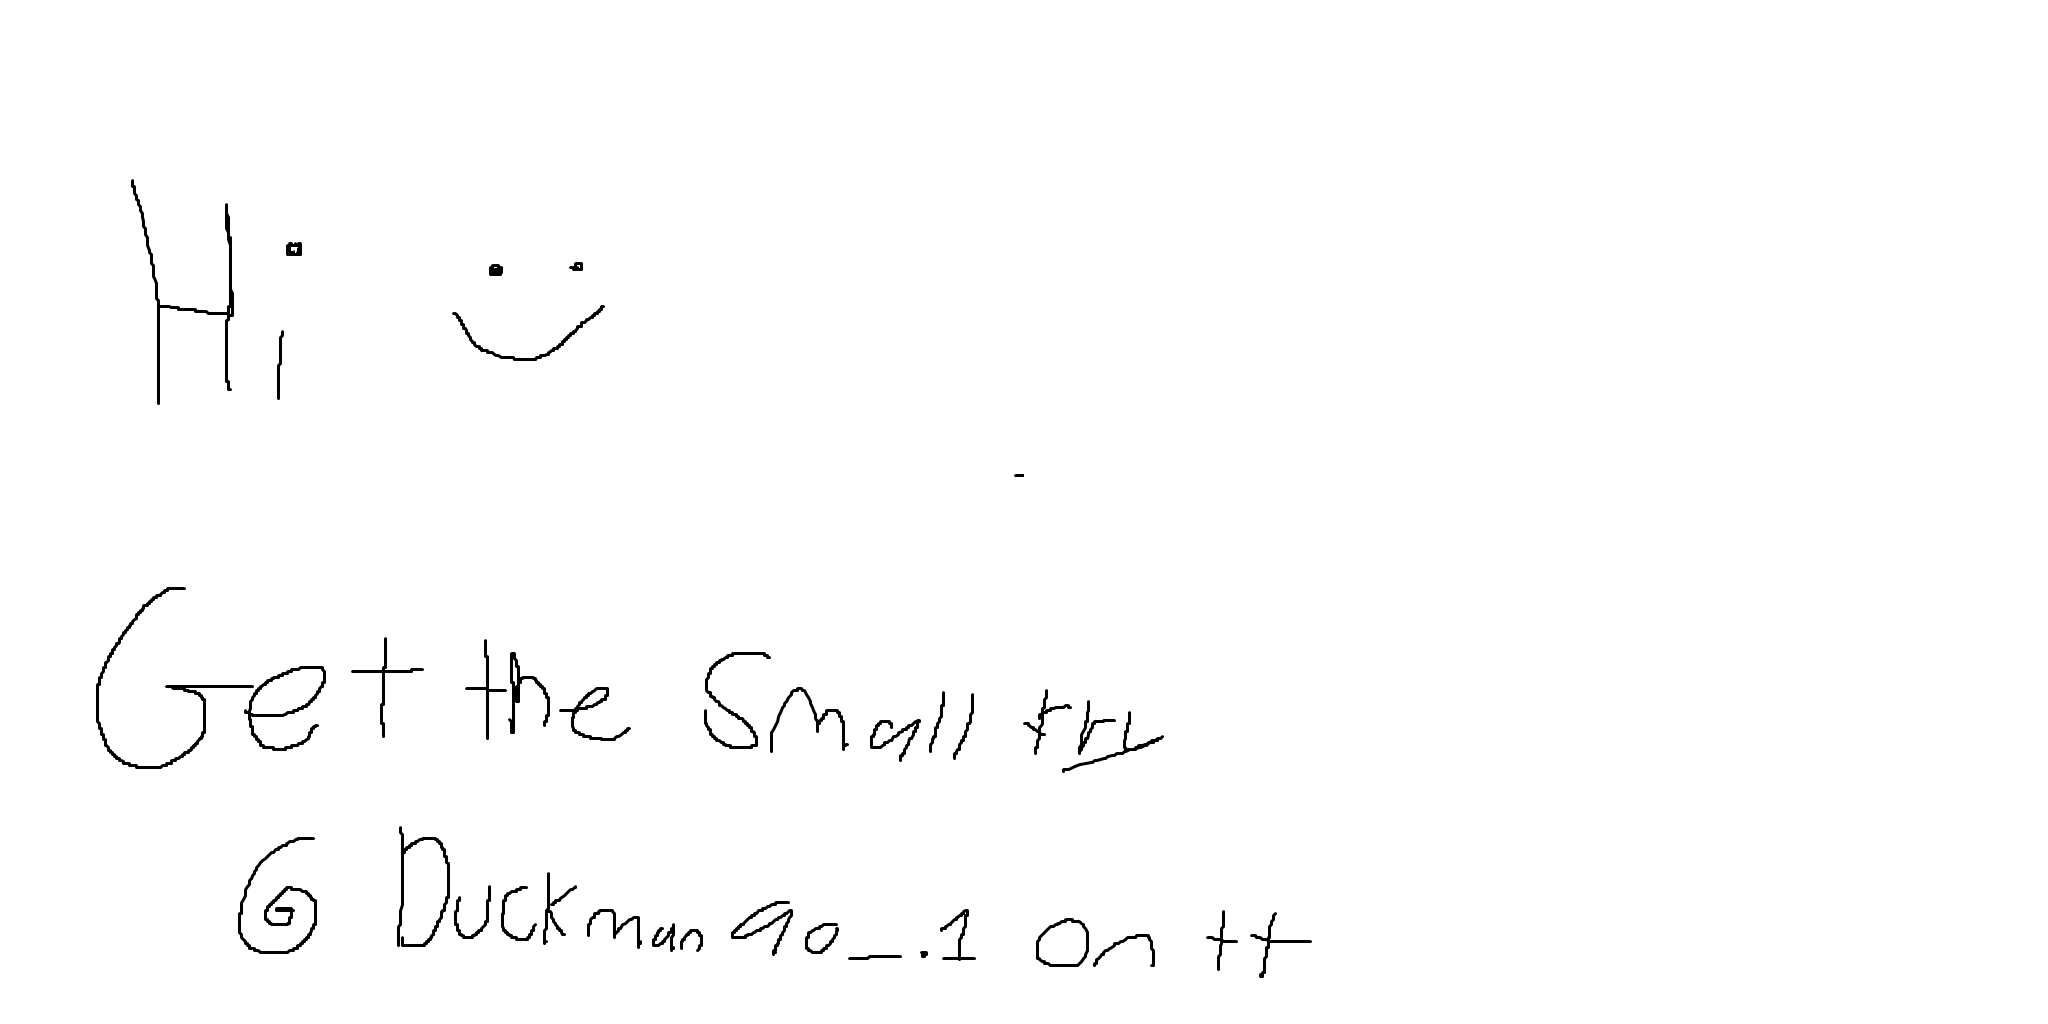 Hi
Get the small try
@ Duckman90_.1 on tt